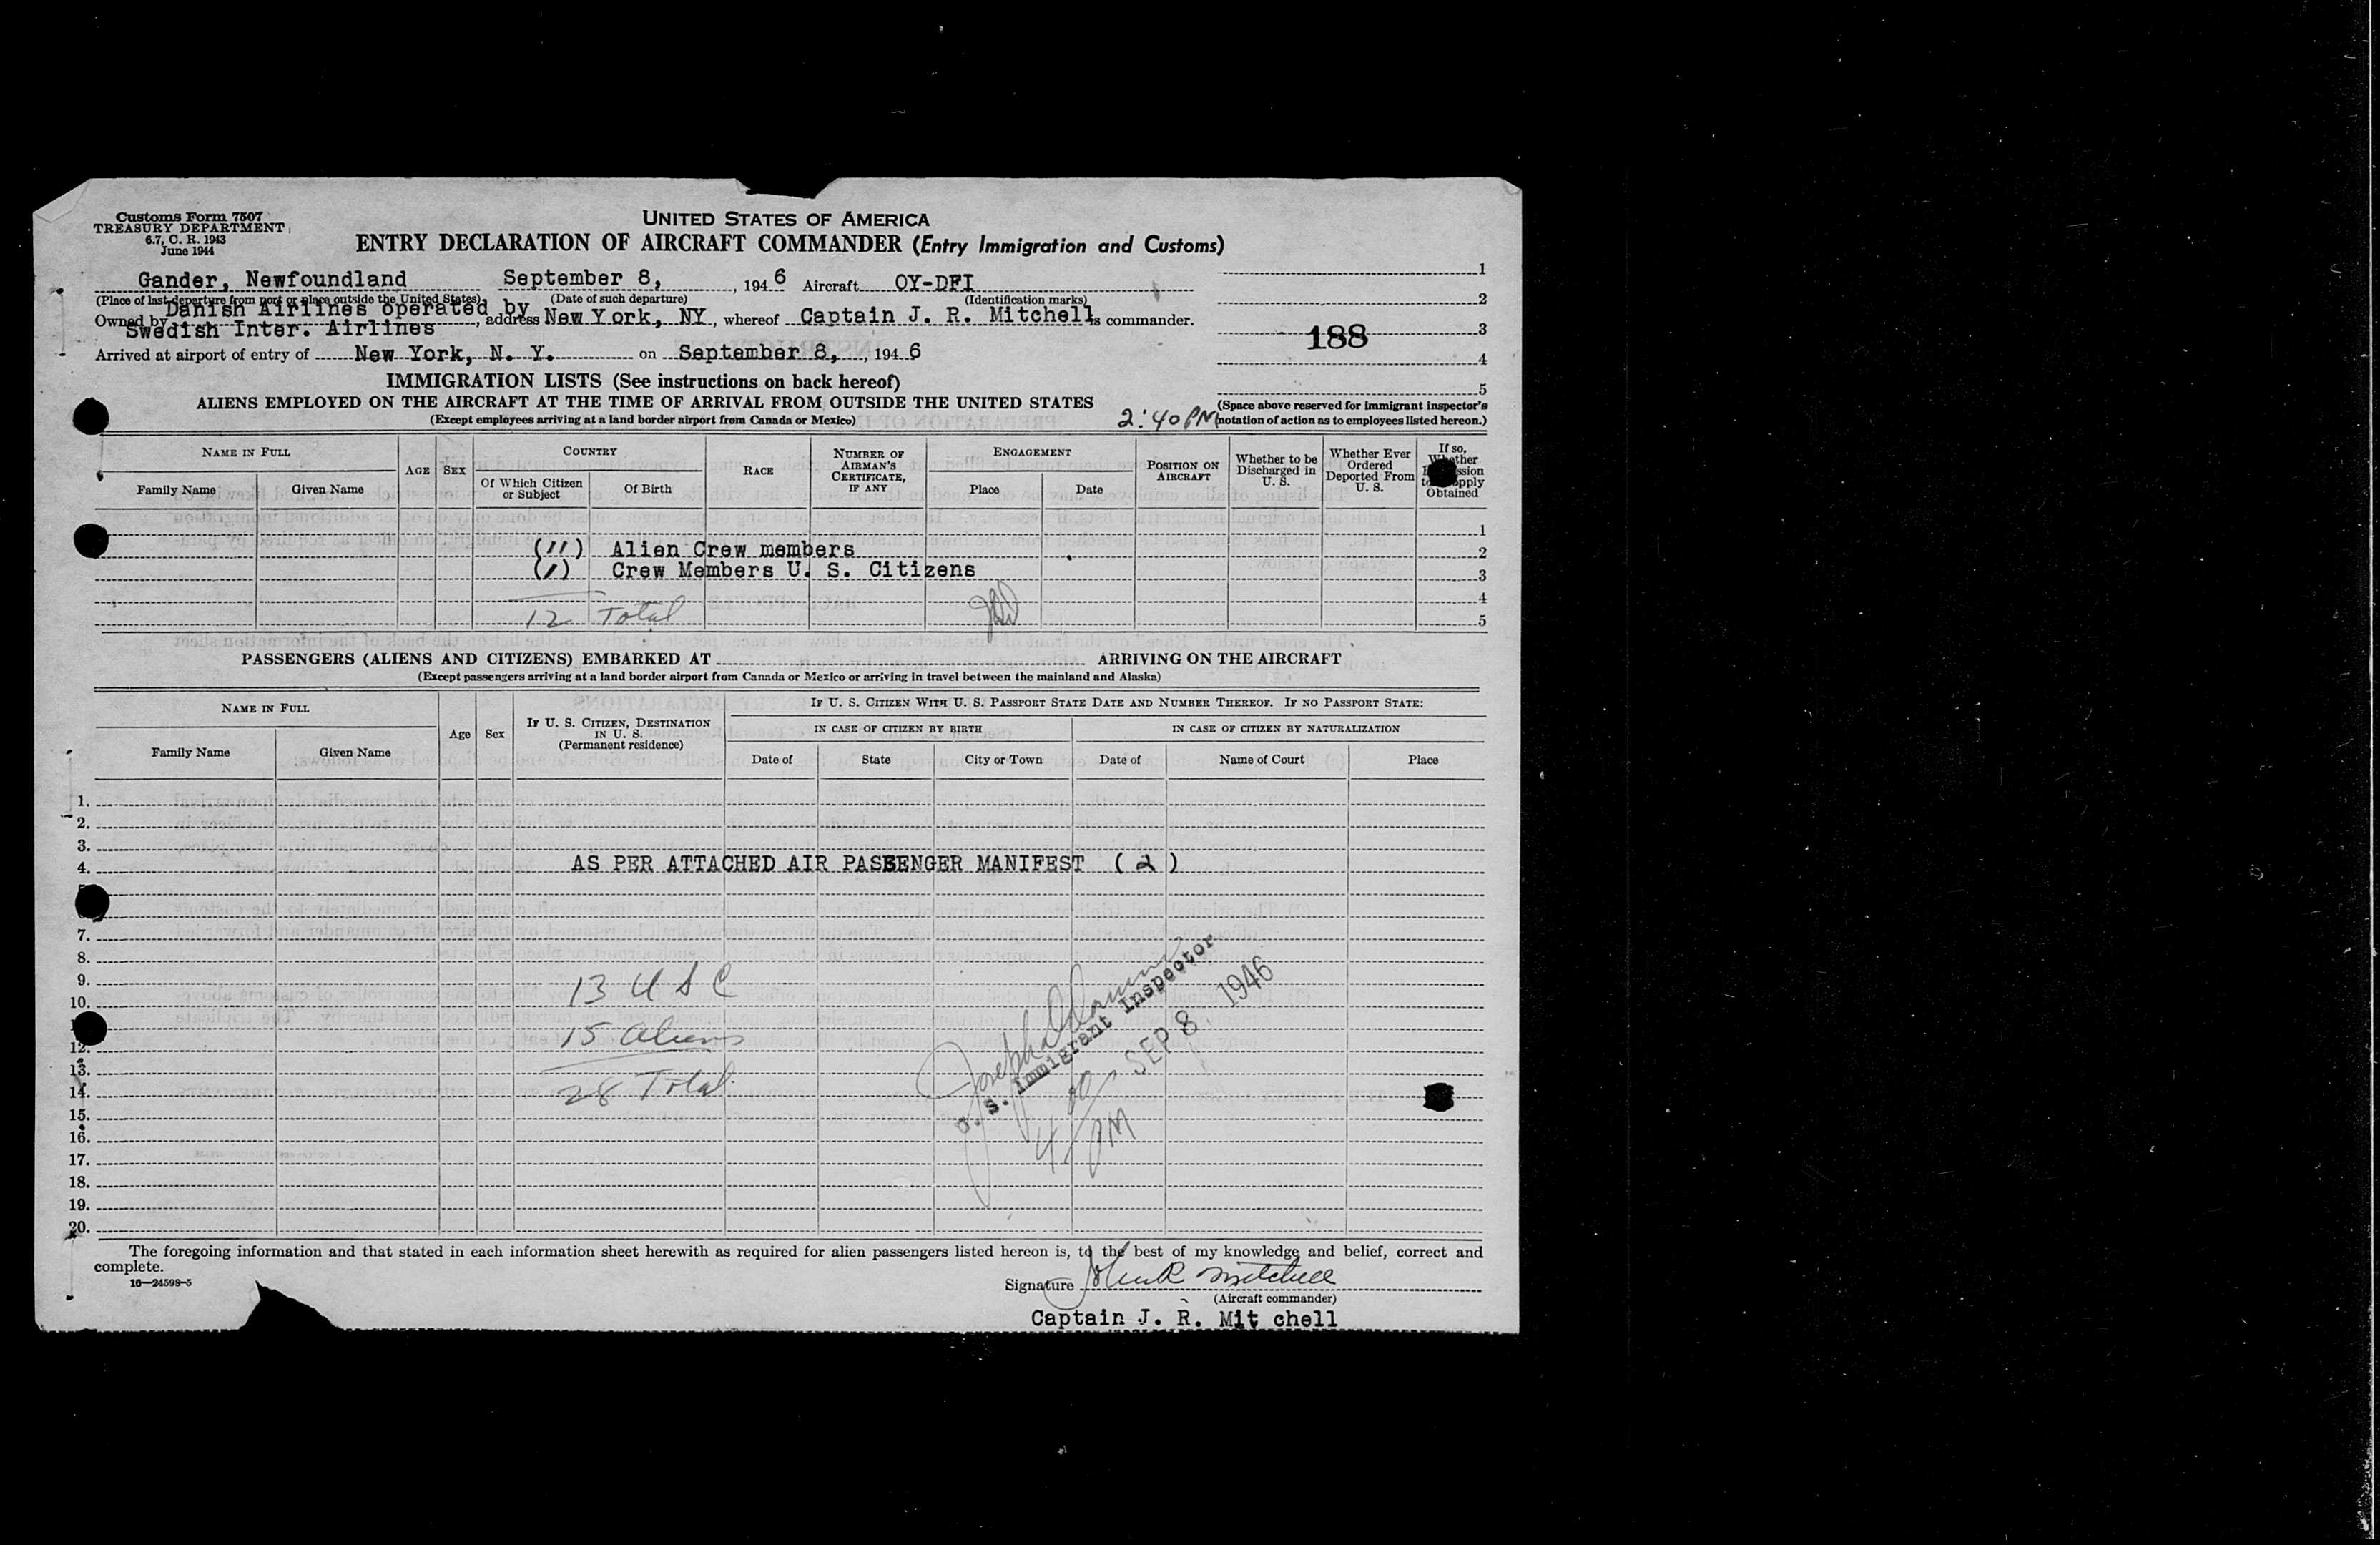 Customs Form 7507
TREASURY DEPARTMENT
6.7, C. R. 1943
June 1944
UNITED STATES OF AMERICA
ENTRY DECLARATION OF AIRCRAFT COMMANDER (Entry Immigration and Customs)
Gander, Newfoundland September 8, , 1946 Aircraft OY-DFI
(Place of last departure from port or place outside the United States) (Date of such departure) (Identification marks)
Danish Airlines operated by
Owned by Swedish Inter. Airlines, address New York, NY, whereof Captain J. R. Mitchell is commander.
Arrived at airport of entry of New York, N. Y. on September 8, , 1946
1
2
3
188
4
5
IMMIGRATION LISTS (See instructions on back hereof)
ALIENS EMPLOYED ON THE AIRCRAFT AT THE TIME OF ARRIVAL FROM OUTSIDE THE UNITED STATES
(Except employees arriving at a land border airport from Canada or Mexico)
2:40 PM
(Space above reserved for immigrant inspector's
notation of action as to employees listed hereon.)
NAME IN FULL
Family Name Given Name
AGE SEX
COUNTRY
Of Which Citizen or Subject Of Birth
RACE
NUMBER OF AIRMAN'S CERTIFICATE, IF ANY
ENGAGEMENT
Place Date
POSITION ON AIRCRAFT
Whether to be Discharged in U. S.
Whether Ever Ordered Deported From U. S.
If so, Whether
Obtained
1
(11) Alien Crew members 2
(1) Crew Members U. S. Citizens 3
4
12 Total 5
PASSENGERS (ALIENS AND CITIZENS) EMBARKED AT ARRIVING ON THE AIRCRAFT
(Except passengers arriving at a land border airport from Canada or Mexico or arriving in travel between the mainland and Alaska)
NAME IN FULL
Family Name Given Name
Age Sex
IF U. S. CITIZEN, DESTINATION IN U. S.
(Permanent residence)
IF U. S. CITIZEN WITH U. S. PASSPORT STATE DATE AND NUMBER THEREOF. IF NO PASSPORT STATE:
IN CASE OF CITIZEN BY BIRTH IN CASE OF CITIZEN BY NATURALIZATION
Date of State City or Town Date of Name of Court Place
1.
2.
3.
4. AS PER ATTACHED AIR PASSENGER MANIFEST (2)
7.
8.
9. 13 U S C
10.
12. 15 Aliens
13.
14. 28 Total
15.
16.
17.
18.
19.
20.
S. Immigrant Inspector
SEP 8 1946
PM
The foregoing information and that stated in each information sheet herewith as required for alien passengers listed hereon is, to the best of my knowledge and belief, correct and
complete.
16—24598-5
Signature John R Mitchell
(Aircraft commander)
Captain J. R. Mit chell